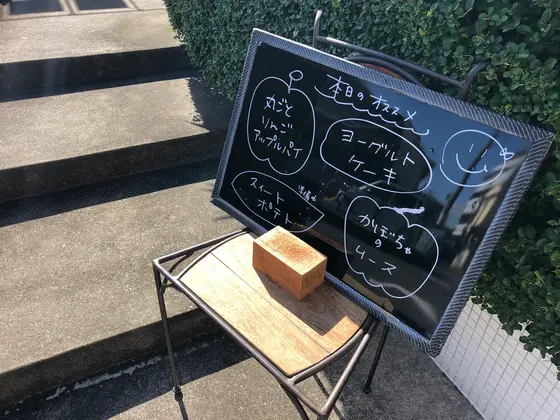 本日のオススメ
丸ごと
りんご
アップルパイ
ヨーグルト
ケーキ
準備中
スイート
ポテト
かぼちゃ
の
ムース